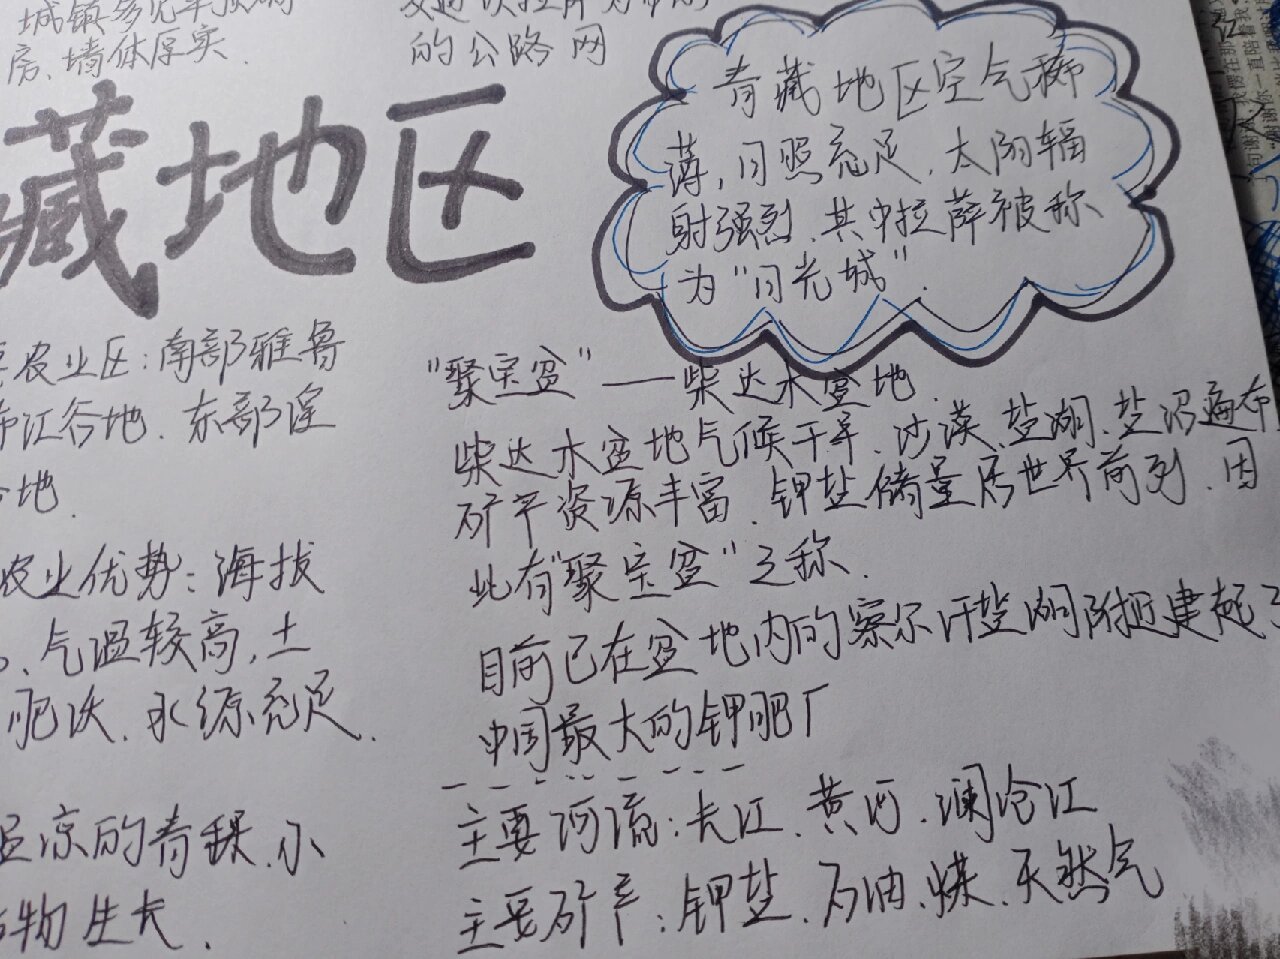 城镇多见平顶碉
房、墙体厚实.
的公路网
藏地区
青藏地区空气稀
薄,日照充足,太阳辐
射强烈、其中拉萨被称
为"日光城".
农业区:南部雅鲁
布江谷地、东部湟
地.
农业优势:海拔
、气温较高,土
肥沃、水源充足.
温凉的青稞、小
物生长.
"聚宝盆"——柴达木盆地.
柴达木盆地气候干旱、沙漠、盐湖、盐沼遍布
矿产资源丰富、钾盐储量居世界前列、因
此有"聚宝盆"之称.
目前已在盆地内的察尔汗盐湖附近建起了
中国最大的钾肥厂
主要河流:长江、黄河、澜沧江
主要矿产:钾盐、石油、煤、天然气